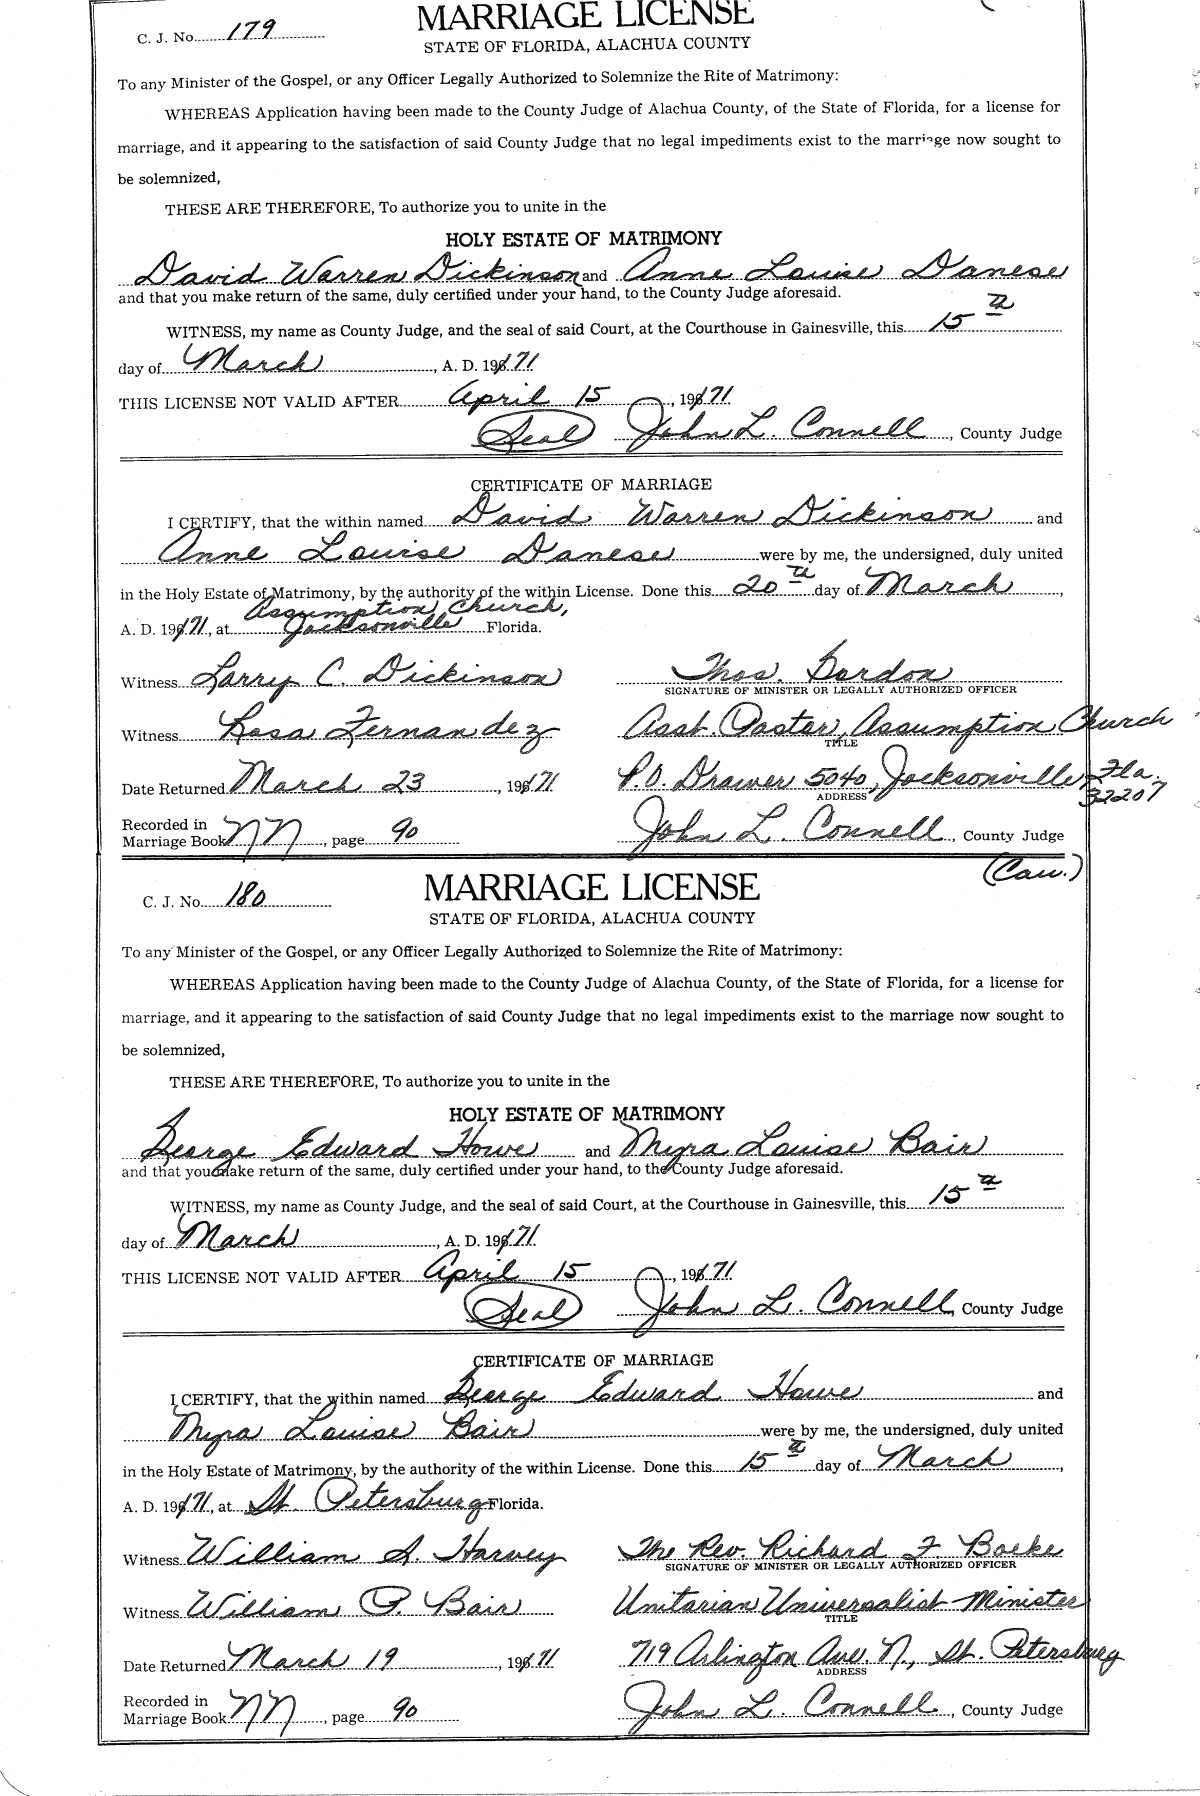 MARRIAGE LICENSE
C. J. No. 179
STATE OF FLORIDA, ALACHUA COUNTY
To any Minister of the Gospel, or any Officer Legally Authorized to Solemnize the Rite of Matrimony:
WHEREAS Application having been made to the County Judge of Alachua County, of the State of Florida, for a license for
marriage, and it appearing to the satisfaction of said County Judge that no legal impediments exist to the marriage now sought to
be solemnized,
THESE ARE THEREFORE, To authorize you to unite in the
HOLY ESTATE OF MATRIMONY
David Warren Dickinson and Anne Louise Danese
and that you make return of the same, duly certified under your hand, to the County Judge aforesaid.
WITNESS, my name as County Judge, and the seal of said Court, at the Courthouse in Gainesville, this 15th
day of March, A. D. 1971.
THIS LICENSE NOT VALID AFTER April 15, 1971.
Seal John L. Connell, County Judge
CERTIFICATE OF MARRIAGE
I CERTIFY, that the within named David Warren Dickinson and
Anne Louise Danese were by me, the undersigned, duly united
in the Holy Estate of Matrimony, by the authority of the within License. Done this 20th day of March,
Assumption Church,
A. D. 1971, at Jacksonville Florida.
Witness Larry C. Dickinson Thos. Gordon
SIGNATURE OF MINISTER OR LEGALLY AUTHORIZED OFFICER
Witness Rosa Fernandez Asst. Pastor, Assumption Church
TITLE
Date Returned March 23, 1971 P.O. Drawer 5040, Jacksonville, Fla. 32207
ADDRESS
Recorded in
Marriage Book NN, page 90 John L. Connell, County Judge
(Cau.)
MARRIAGE LICENSE
C. J. No. 180
STATE OF FLORIDA, ALACHUA COUNTY
To any Minister of the Gospel, or any Officer Legally Authorized to Solemnize the Rite of Matrimony:
WHEREAS Application having been made to the County Judge of Alachua County, of the State of Florida, for a license for
marriage, and it appearing to the satisfaction of said County Judge that no legal impediments exist to the marriage now sought to
be solemnized,
THESE ARE THEREFORE, To authorize you to unite in the
HOLY ESTATE OF MATRIMONY
George Edward Howe and Myra Louise Bair
and that you make return of the same, duly certified under your hand, to the County Judge aforesaid.
WITNESS, my name as County Judge, and the seal of said Court, at the Courthouse in Gainesville, this 15th
day of March, A. D. 1971.
THIS LICENSE NOT VALID AFTER April 15, 1971.
Seal John L. Connell, County Judge
CERTIFICATE OF MARRIAGE
I CERTIFY, that the within named George Edward Howe and
Myra Louise Bair were by me, the undersigned, duly united
in the Holy Estate of Matrimony, by the authority of the within License. Done this 15th day of March,
A. D. 1971, at St. Petersburg Florida.
Witness William S. Harvey The Rev. Richard F. Boeke
SIGNATURE OF MINISTER OR LEGALLY AUTHORIZED OFFICER
Witness William P. Bair Unitarian Universalist Minister
TITLE
Date Returned March 19, 1971 719 Arlington Ave. N., St. Petersburg
ADDRESS
Recorded in
Marriage Book NN, page 90 John L. Connell, County Judge